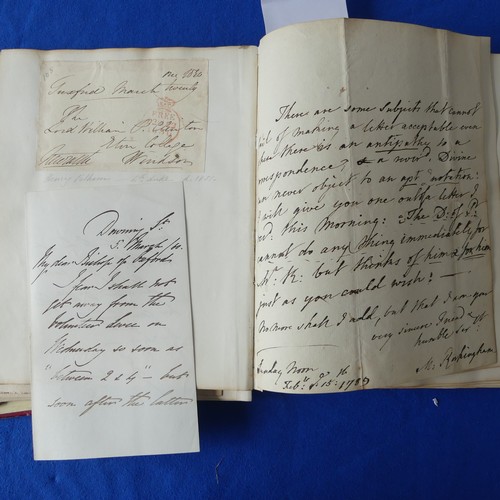 Tuxford March twenty
The
Lord William
Eton College
Windsor
Downing St.
5. March
My dear Bishop of Oxford
I fear I shall not
get away from the
Volunteer Levee on
Wednesday so soon as
"between 2 & 4" - but
soon after the latter
There are some subjects that cannot
fail of making a letter acceptable even
when there is an antipathy to a
correspondence; & a novel Divine
can never object to an apt notation:
I will give you one out of a letter I
recd. this Morning: "The D: of P:
cannot do any thing immediately for
Mr. K: but thinks of him & for him
just as you could wish: —
No more shall I add, but that I am your
very sincere Friend &
humble Servt.
M: Rockingham
Sunday Noon
Feby. 16